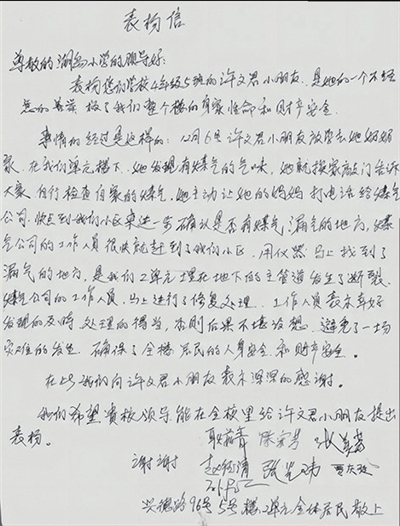 表扬信
尊敬的湖岛小学的领导好:
表扬你们学校4年级5班的许文君小朋友,是她的一个不经
意的善举救了我们整个楼的身家性命和财产安全.
事情的经过是这样的:12月6号许文君小朋友放学去她奶奶
家.在我们单元楼下,她发现有煤气的气味,她就挨家敲门告诉
大家自行检查自家的煤气,她主动让她的妈妈打电话给煤气
公司,快点到我们小区来进一步确认是否有煤气漏气的地方,煤
气公司的工作人员很快就赶到了我们小区,用仪器马上找到了
漏气的地方,是我们2单元埋在地下的主管道发生了断裂.
煤气公司的工作人员,马上进行了修复处理.工作人员表示幸好
发现的及时处理的得当,否则后果不堪设想.避免了一场
灾难的发生,确保了全楼居民的人身安全和财产安全.
在此我们向许文君小朋友表示深深的感谢.
我们希望贵校领导能在全校里给许文君小朋友提出
表扬.
谢谢
兴德路96号5号楼2单元全体居民敬上